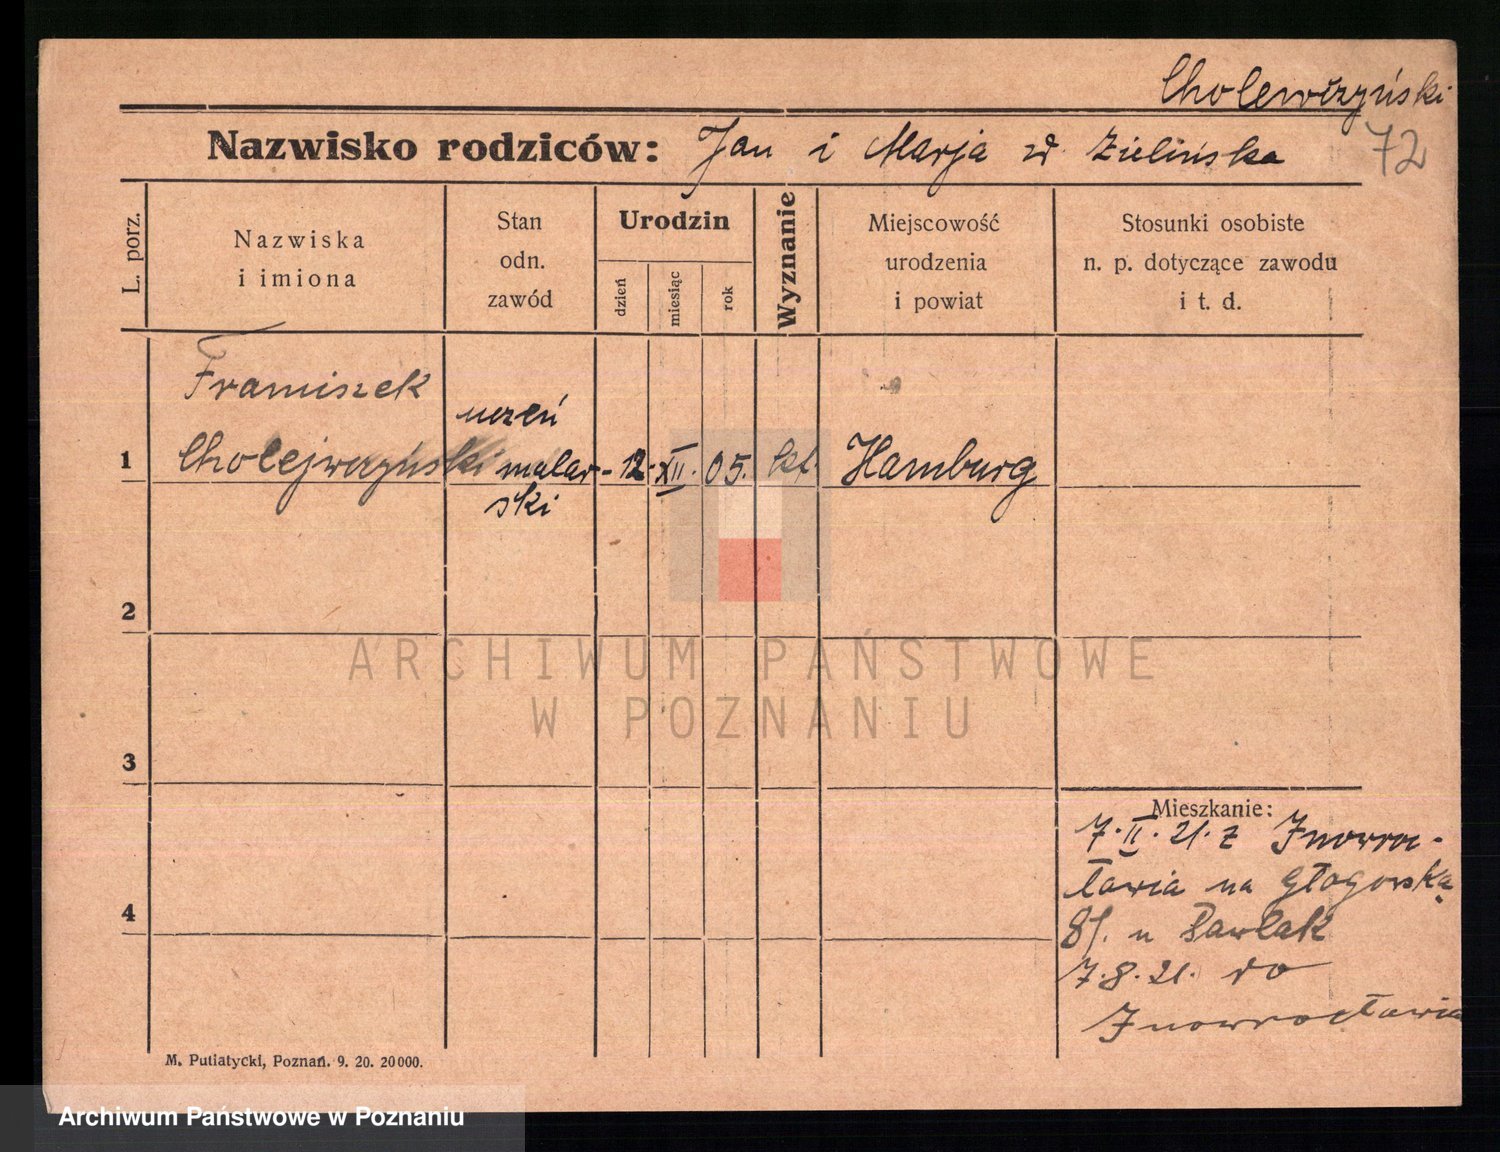 Cholewczyński
72
Nazwisko rodziców: Jan i Marja zd Zielińska
L. porz.
Nazwiska
i imiona
Stan
odn.
zawód
Urodzin
dzień
miesiąc
rok
Wyznanie
Miejscowość
urodzenia
i powiat
Stosunki osobiste
n. p. dotyczące zawodu
i t. d.
1
Franciszek
Cholejwczyński
uczeń
malar-
ski
12. XII. 05.
kt.
Hamburg
2
3
4
Mieszkanie:
7.II.21. z Inowroc-
ławia na Głogowską
81. u Pawlak
7.8.21. do
Inowrocławia
M. Putiatycki, Poznań. 9. 20. 20000.
ARCHIWUM PAŃSTWOWE
W POZNANIU
Archiwum Państwowe w Poznaniu